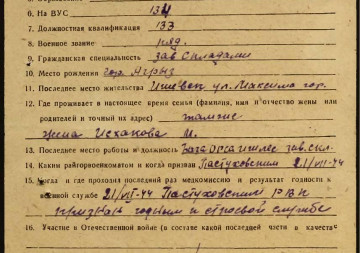 6. На ВУС 134
7. Должностная квалификация 133
8. Военное звание ряд.
9. Гражданская специальность зав. складами
10. Место рождения гор. Агрыз
11. Последнее место жительства Ижевск ул. Максима Гор.
12. Где проживает в настоящее время семья (фамилия, имя и отчество жены или
родителей и точный их адрес)
жена Исхакова М.
13. Последнее место работы и должность зав. скл.
14. Каким райгорвоенкоматом и когда призван Пастуховским 21/VII-44
15. Когда и где проходил последний раз медкомиссию и результат годности к
военной службе 21/VII-44 Пастуховским РВК
признан годным к строевой службе
16. Участие в Отечественной войне (в составе какой последней части в качестве